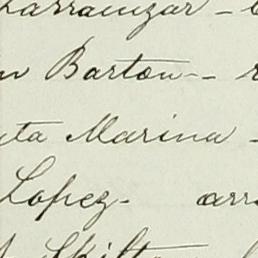 Larrauzar -
n Barton -- 
ta Marina -
Lopez - arr